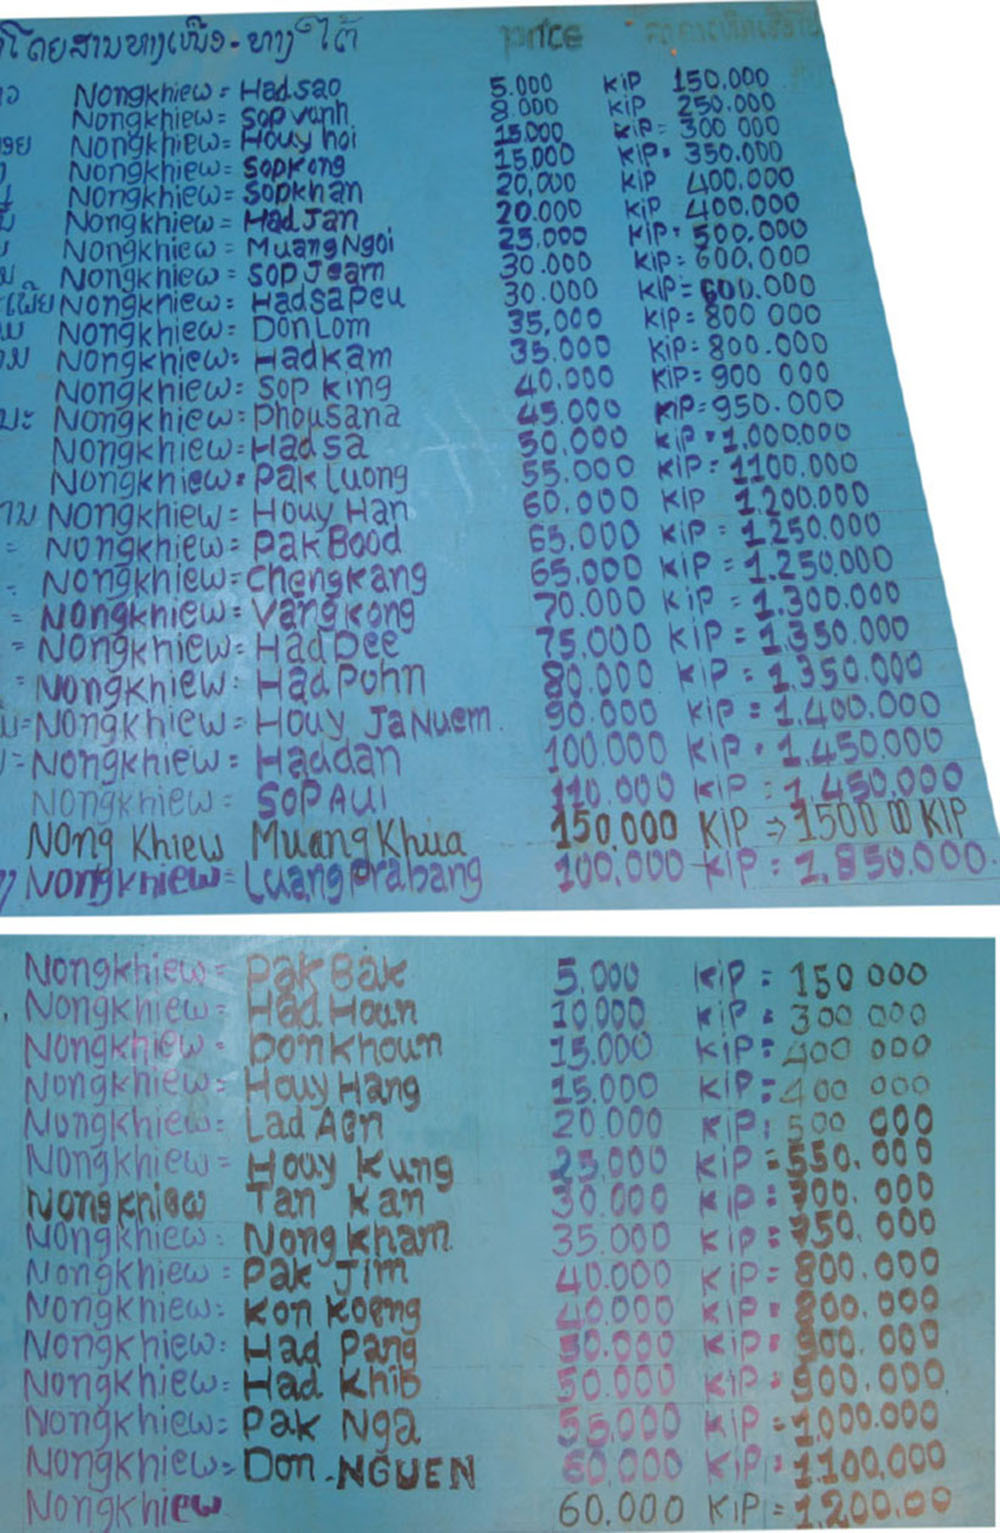 ໂດຍສານທາງເໜືອ - ທາງໃຕ້ price
Nongkhiew = Hadsao 5.000 KIP 150.000
Nongkhiew = Sop vanh 8.000 KIP 250.000
Nongkhiew = Houy hoi 15.000 KIP = 300 000
Nongkhiew = Sopkong 15,000 KIP = 350.000
Nongkhiew = Sopkhan 20,000 KIP 400.000
Nongkhiew = Had Jan 20.000 KIP 400.000
Nongkhiew = Muang Ngoi 25.000 KIP = 500.000
Nongkhiew = Sop Jeam 30.000 KIP = 600.000
Nongkhiew = Hadsapeu 30.000 KIP = 600.000
Nongkhiew = Don Lom 35,000 KIP = 800 000
Nongkhiew = Hadkam 35.000 KIP = 800.000
Nongkhiew = Sop king 40.000 KIP = 900 000
Nongkhiew = Phousana 45.000 KIP = 950.000
Nongkhiew = Hadsa 50.000 KIP = 1.000.000
Nongkhiew = Pak Luong 55.000 KIP = 1100.000
Nongkhiew = Houy Han 60.000 KIP 1.200.000
= Nongkhiew = Pak Bood 65.000 KIP = 1.250.000
= Nongkhiew = Chengkang 65.000 KIP = 1.250.000
= Nongkhiew = Vangkong 70.000 KIP = 1.300.000
= Nongkhiew = Had Dee 75.000 KIP = 1.350.000
= Nongkhiew = Had Pohn 80.000 KIP = 1.350.000
= Nongkhiew = Houy JaNuem 90.000 KIP = 1.400.000
= Nongkhiew = Haddan 100.000 KIP = 1.450.000
Nongkhiew = Sop Aui 110.000 KIP = 1.450.000
Nong Khiew Muang Khua 150,000 KIP ⇒ 1500 00 KIP
Nongkhiew = Luang prabang 100,000 KIP = 1,850.000
Nongkhiew = Pak Bak 5.000 KIP = 150 000
Nongkhiew = Had Houn 10.000 KIP = 300 000
Nongkhiew = Donkhoun 15.000 KIP = 400 000
Nongkhiew = Houy Hang 15.000 KIP = 400 000
Nongkhiew = Lad Aen 20.000 KIP = 500 000
Nongkhiew = Houy Kung 25,000 KIP = 550.000
Nongkhiew Tan Kan 30.000 KIP =
Nongkhiew = Nong kham 35.000 KIP =
Nongkhiew = Pak Jim 40.000 KIP = 800.000
Nongkhiew = Kon Koeng 40.000 KIP = 800.000
Nongkhiew = Had Pang 50.000 KIP = 900.000
Nongkhiew = Had Khib 50.000 KIP = 900.000
Nongkhiew = Pak Nga 55,000 KIP = 1.000.000
Nongkhiew = Don - NGUEN 60,000 KIP = 1.100,000
Nongkhiew 60.000 KIP = 1,200.00